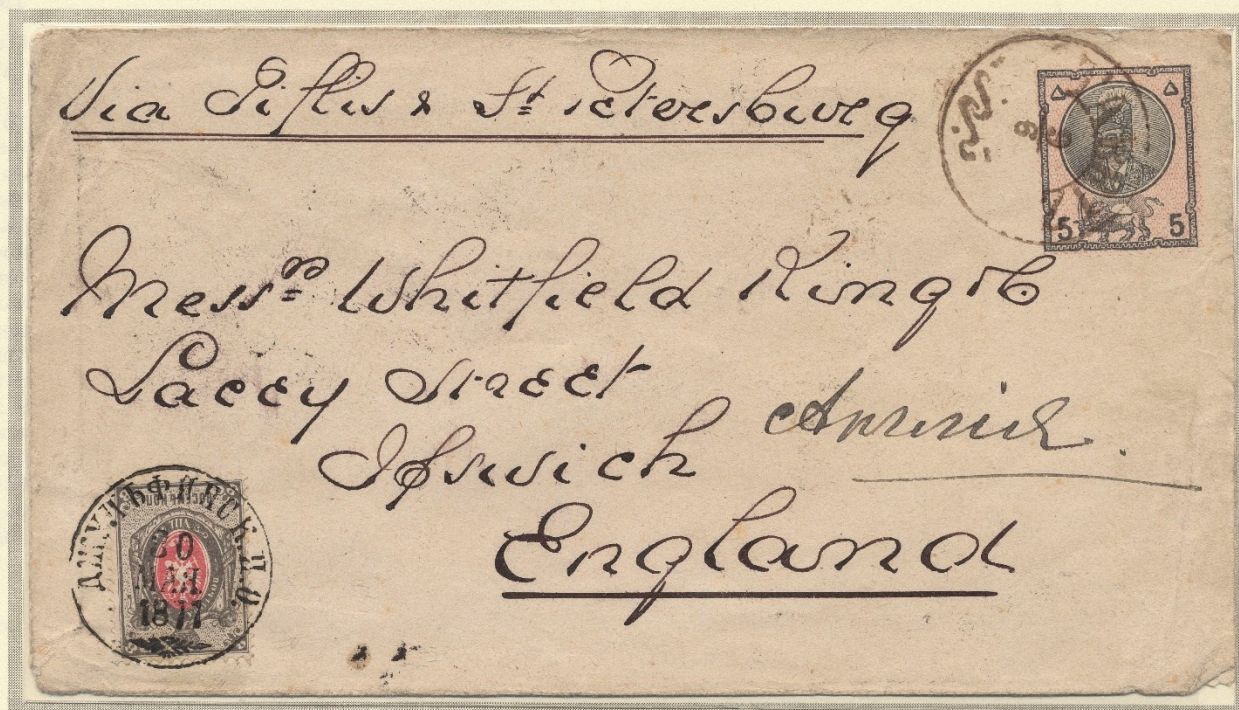 Via Tiflis & St Petersburg
تبریز
5 5
Messrs Whitfield King & Co
Lacey Street
Ipswich
England
ДЖУЛЬФИНСК. П.О.
30
МАЯ
1877